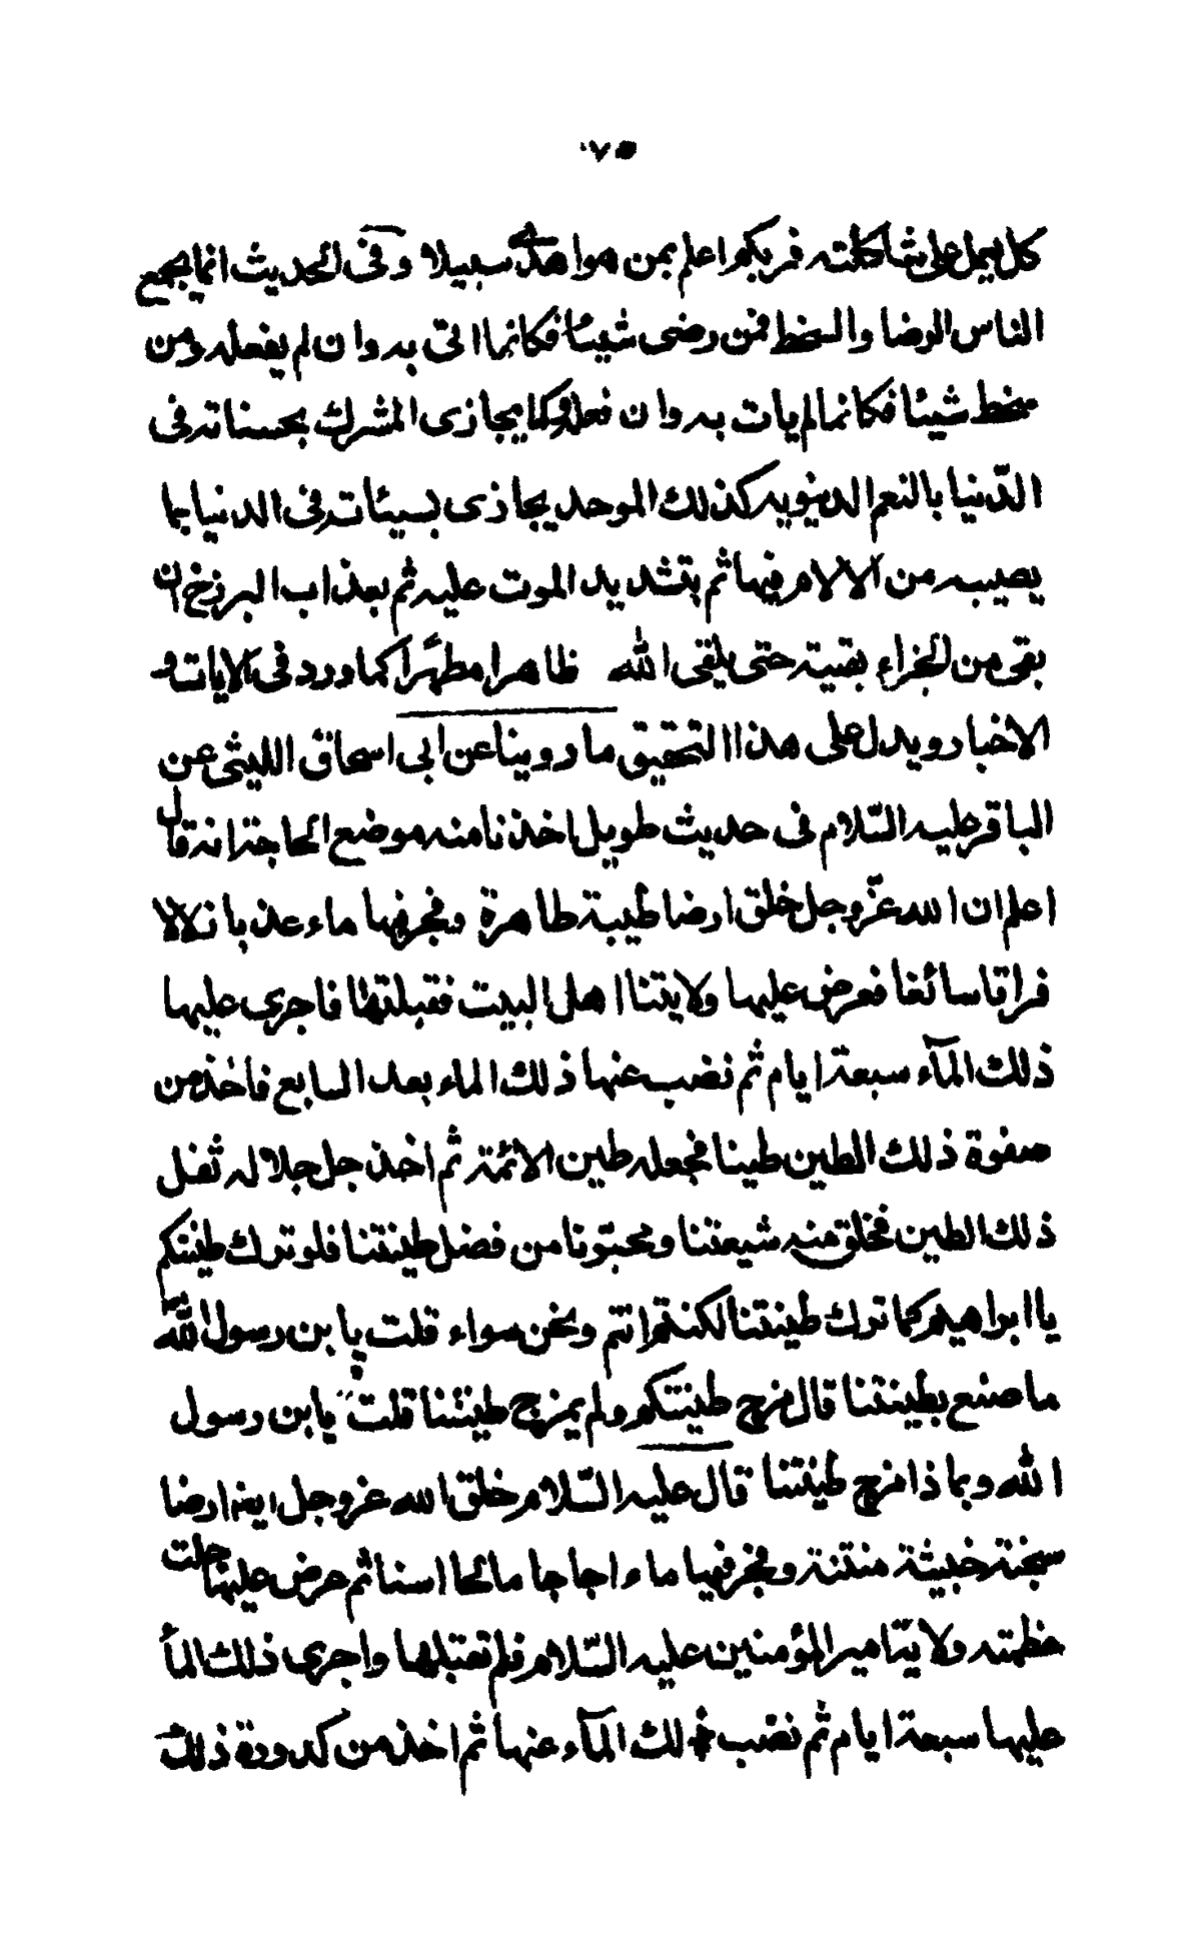 ٠٧٥
كل يعمل على شاكلته فربكم اعلم بمن هو اهدى سبيلا وفي الحديث انما يجمع
الناس الرضا والسخط فمن رضى شيئا فكانما اتى به وان لم يفعله ومن
سخط شيئا فكانما لم يات به وان فعله وكما يجازى المشرك بحسناته فى
الدّنيا بالنعم الدينويه كذلك الموحد يجازى بسيئاته فى الدنيا بما
يصيبه من الالام فيها ثم بتشديد الموت عليه ثم بعذاب البرزخ ان
بقى من الجزاء بقيته حتى يلقى الله ظاهرا مطهّرا كما ورد فى الايات و
الاخبار ويدل على هذا التحقيق ما روينا عن ابى اسحاق الليثى عن
الباقر عليه السّلام فى حديث طويل اخذنا منه موضع الحاجة انه قال
اعلم ان الله عزّوجل خلق ارضا طيبة طاهرة وفجر فيها ماء عذبا زلالا
فراتا سائغا فعرض عليها ولايتنا اهل البيت فقبلتها فاجرى عليها
ذلك المآء سبعة ايام ثم نضب عنها ذلك الماء بعد السابع فاخذ من
صفوة ذلك الطين طينا فجعله طين الائمة ثم اخذ جل جلاله ثفل
ذلك الطين فخلق منه شيعتنا ومحبّونا من فضل طينتنا فلو ترك طينتكم
يا ابراهيم كما ترك طينتنا لكنتم انتم ونحن سواء قلت يابن رسول الله
ما صنع بطينتنا قال مزج طينتكم ولم يمزج طينتنا قلت يابن رسول
الله وبما ذا مزج طينتنا قال عليه السّلام خلق الله عز وجل ايضا ارضا
سبخة خبيثة منتنة وفجر فيها ماء اجاجا مالحا اسنا ثم عرض عليها جلت
عظمته ولاية امير المؤمنين عليه السّلام فلم تقبلها واجرى ذلك المآ
عليها سبعة ايام ثم نضب ذلك المآء عنها ثم اخذ من كدورة ذلك